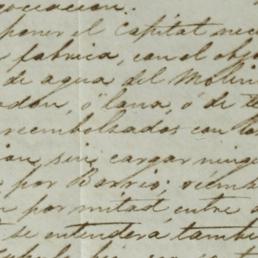 ociacion.
poner el Capital nec
fabrica, con el obj
de agua del Molin
adon, o lana, o de te
reembolsados con
sin cargar ning
por Barrio;
por mitad entre
se entendera tambi